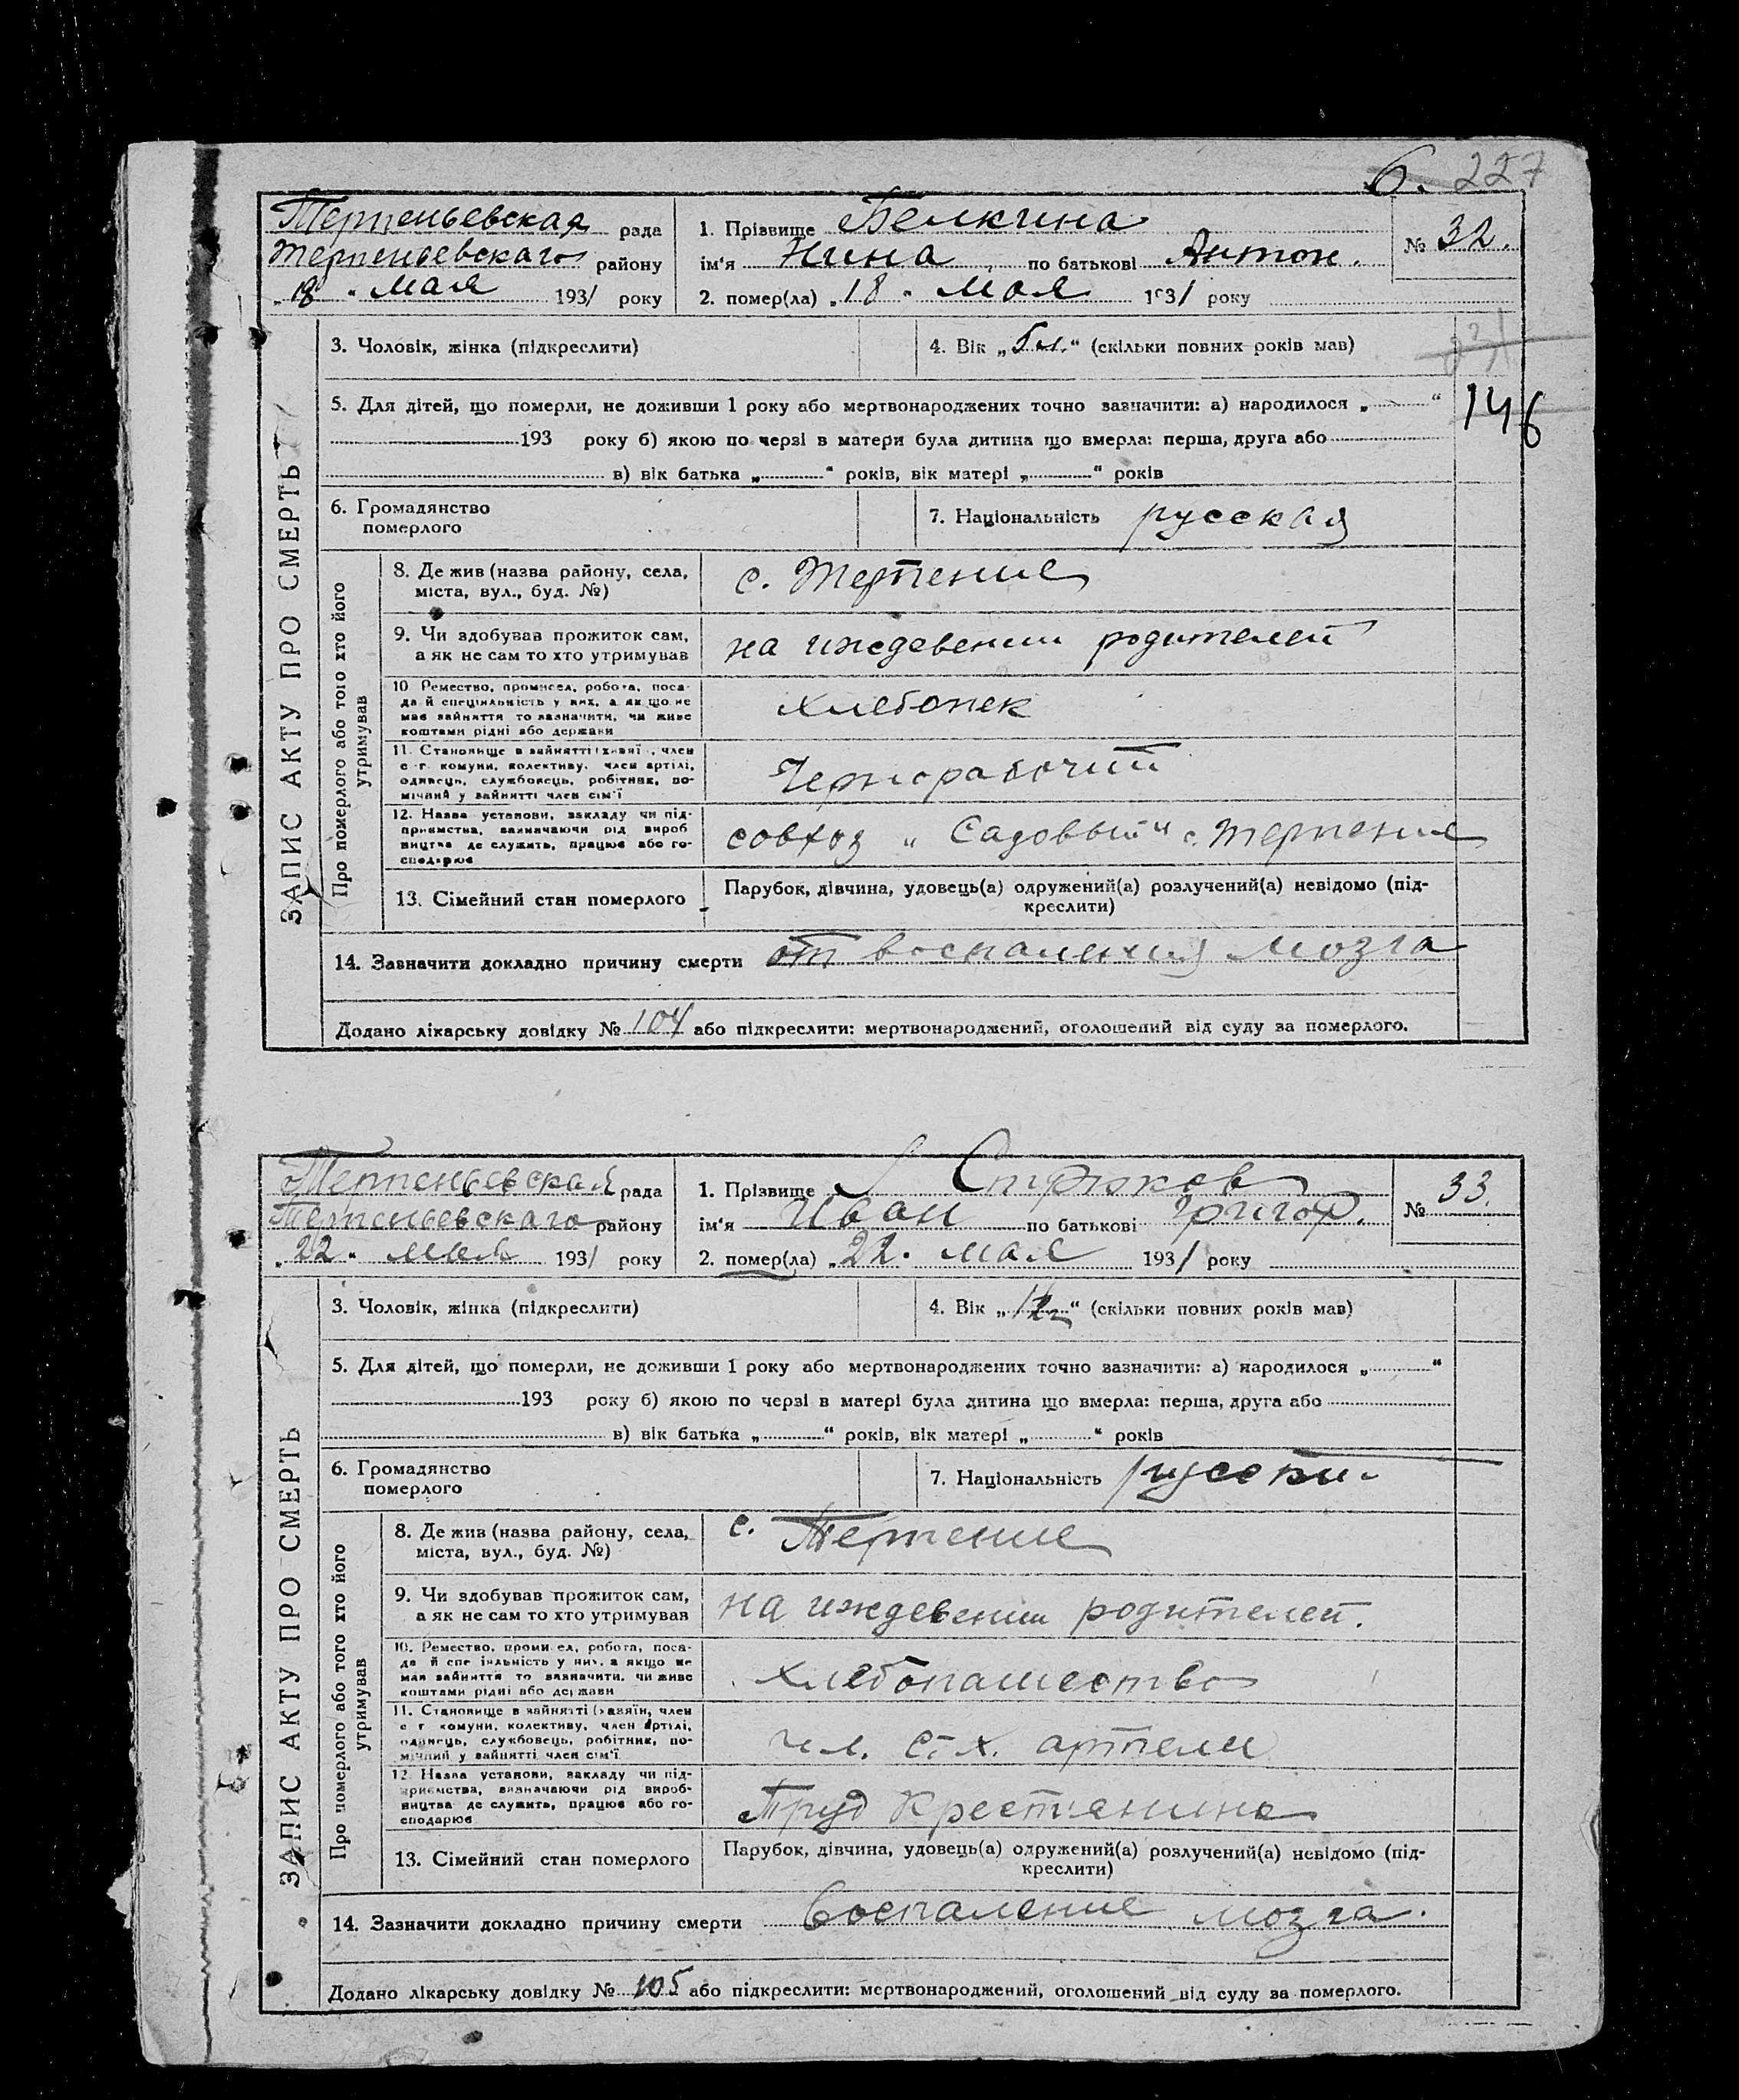 6. 227
Терпеньевская рада
Терпеньевскаго району
"18" мая 1931 року
1. Прізвище Белкина
ім'я Нина по батькові Антон.
2. помер(ла) "18" мая 1931 року
№ 32.
3. Чоловік, жінка (підкреслити)
4. Вік „5 л.“ (скільки повних років мав)
146
5. Для дітей, що померли, не доживши 1 року або мертвонароджених точно зазначити: а) народилося „ “
193 року б) якою по черзі в матери була дитина що вмерла: перша, друга або
в) вік батька „ “ років, вік матері „ “ років
6. Громадянство
померлого
7. Національність русская
ЗАПИС АКТУ ПРО СМЕРТЬ
Про померлого або того хто його
утримував
8. Де жив (назва району, села,
міста, вул., буд. №)
с. Терпение
9. Чи здобував прожиток сам,
а як не сам то хто утримував
на иждевении родителей
10 Ремество, промисел, робота, поса-
да й спеціяльність у них, а як що не
має зайняття то зазначити, чи живе
коштами рідні або держави
хлебопек
11. Становище в зайнятті (хазяї , член
с-г. комуни, колективу, член артілі,
одинець, службовець, робітник, по-
мічний у зайнятті член сім'ї
Чернорабочий
12. Назва установи, закладу чи під-
приємства, зазначаючи рід вироб
ництва де служить, працює або го-
сподарює
совхоз „Садовый“ с. Терпение
13. Сімейний стан померлого
Парубок, дівчина, удовець(а) одружений(а) розлучений(а) невідомо (під-
креслити)
14. Зазначити докладно причину смерти от воспаления мозга
Додано лікарську довідку № 104 або підкреслити: мертвонароджений, оголошений від суду за померлого.
Терпеньевская рада
Терпеньевскаго району
"22" мая 1931 року
1. Прізвище
ім'я Иван по батькові Григор.
2. помер(ла) "22" мая 1931 року
№ 33.
3. Чоловік, жінка (підкреслити)
4. Вік „ “ (скільки повних років мав)
5. Для дітей, що померли, не доживши 1 року або мертвонароджених точно зазначити: а) народилося „ “
193 року б) якою по черзі в матері була дитина що вмерла: перша, друга або
в) вік батька „ “ років, вік матері „ “ років
6. Громадянство
померлого
7. Національність
ЗАПИС АКТУ ПРО СМЕРТЬ
Про померлого або того хто його
утримував
8. Де жив (назва району, села,
міста, вул., буд. №)
с. Терпение
9. Чи здобував прожиток сам,
а як не сам то хто утримував
на иждевении родителей.
10. Ремество, промисел, робота, поса-
да й спеціяльність у них, а якщо не
має зайняття то зазначити, чи живе
коштами рідні або держави
хлебопашество
11. Становище в зайнятті (хазяїн, член
с г комуни, колективу, член артілі,
одинець, службовець, робітник, по-
мічний у зайнятті член сім'ї
чл. с.х. артели
12 Назва установи, закладу чи під-
приємства, визначаючи рід вироб-
ництва де служить, працює або го-
сподарює
Труд Крестьянина
13. Сімейний стан померлого
Парубок, дівчина, удовець(а) одружений(а) розлучений(а) невідомо (під-
креслити)
14. Зазначити докладно причину смерти Воспаление мозга.
Додано лікарську довідку № 105 або підкреслити: мертвонароджений, оголошений від суду за померлого.